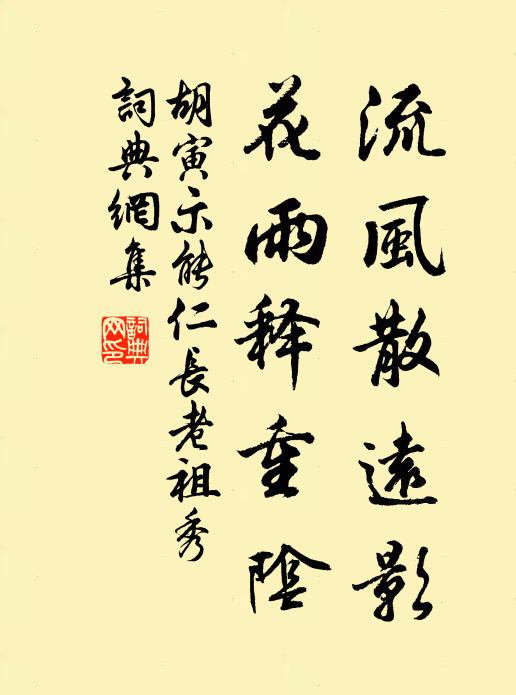 流風散遠影
花雨释重陰
胡寅示能仁長老祖秀
詞典網集
詞典網印